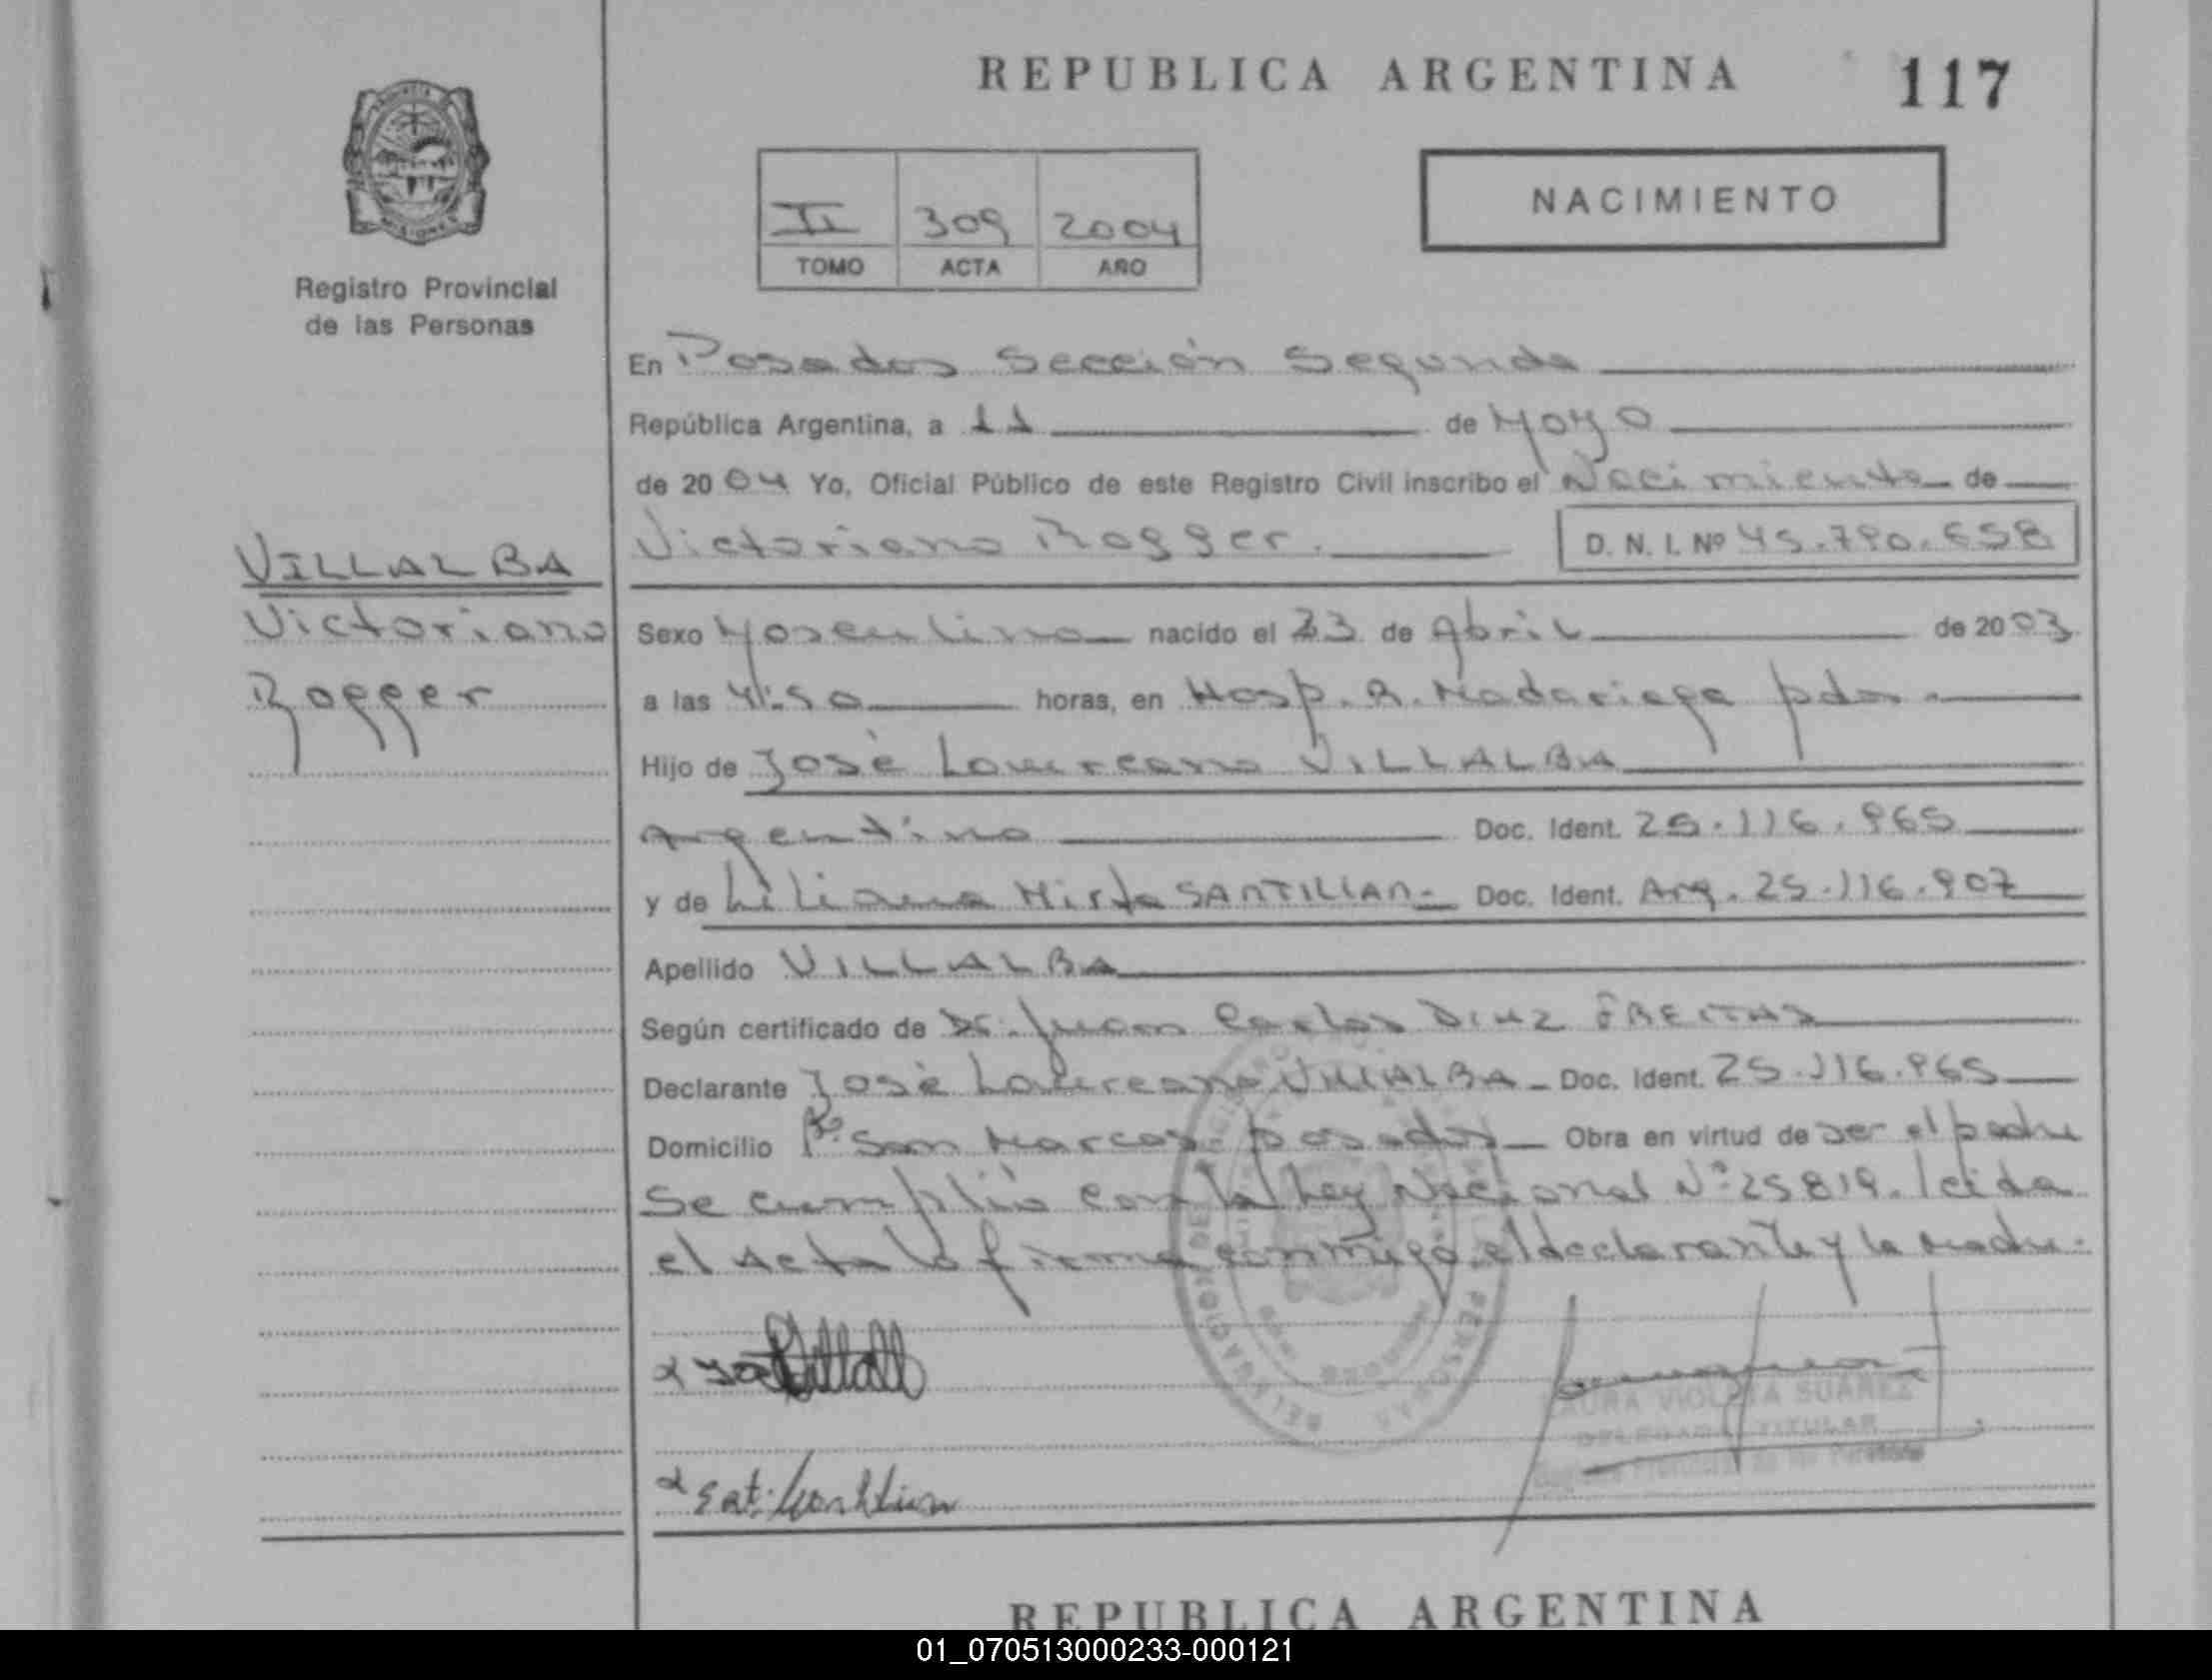 REPUBLICA ARGENTINA
117
NACIMIENTO
II 309 2004
TOMO ACTA AÑO
Registro Provincial
de las Personas
En Posadas Sección Segunda
República Argentina, a 11 de Mayo
de 2004 Yo, Oficial Público de este Registro Civil inscribo el Nacimiento de
Victoriano Rogger. D. N. I. Nº 45.790.658
VILLALBA
Victoriano
Rogger
Sexo Masculino nacido el 23 de Abril de 2003
a las 4:50 horas, en Hosp. R. Madariaga pdas.
Hijo de José Laureano VILLALBA
Argentino Doc. Ident. 25.116.965
y de Liliana Mirta SANTILLAN Doc. Ident. Arg. 25.116.907
Apellido VILLALBA
Según certificado de Dr. Juan Carlos DIAZ FREITAS
Declarante José Laureano VILLALBA Doc. Ident. 25.116.965
Domicilio Bº San Marcos. posadas Obra en virtud de ser el padre
Se cumplió con la Ley Nacional Nº 25819. leida
el Acta la firma conmigo el declarante y la Madre.
LAURA VIOLETA SUAREZ
DELEGADA TITULAR
Registro Provincial de las Personas
REPUBLICA ARGENTINA
01_070513000233-000121